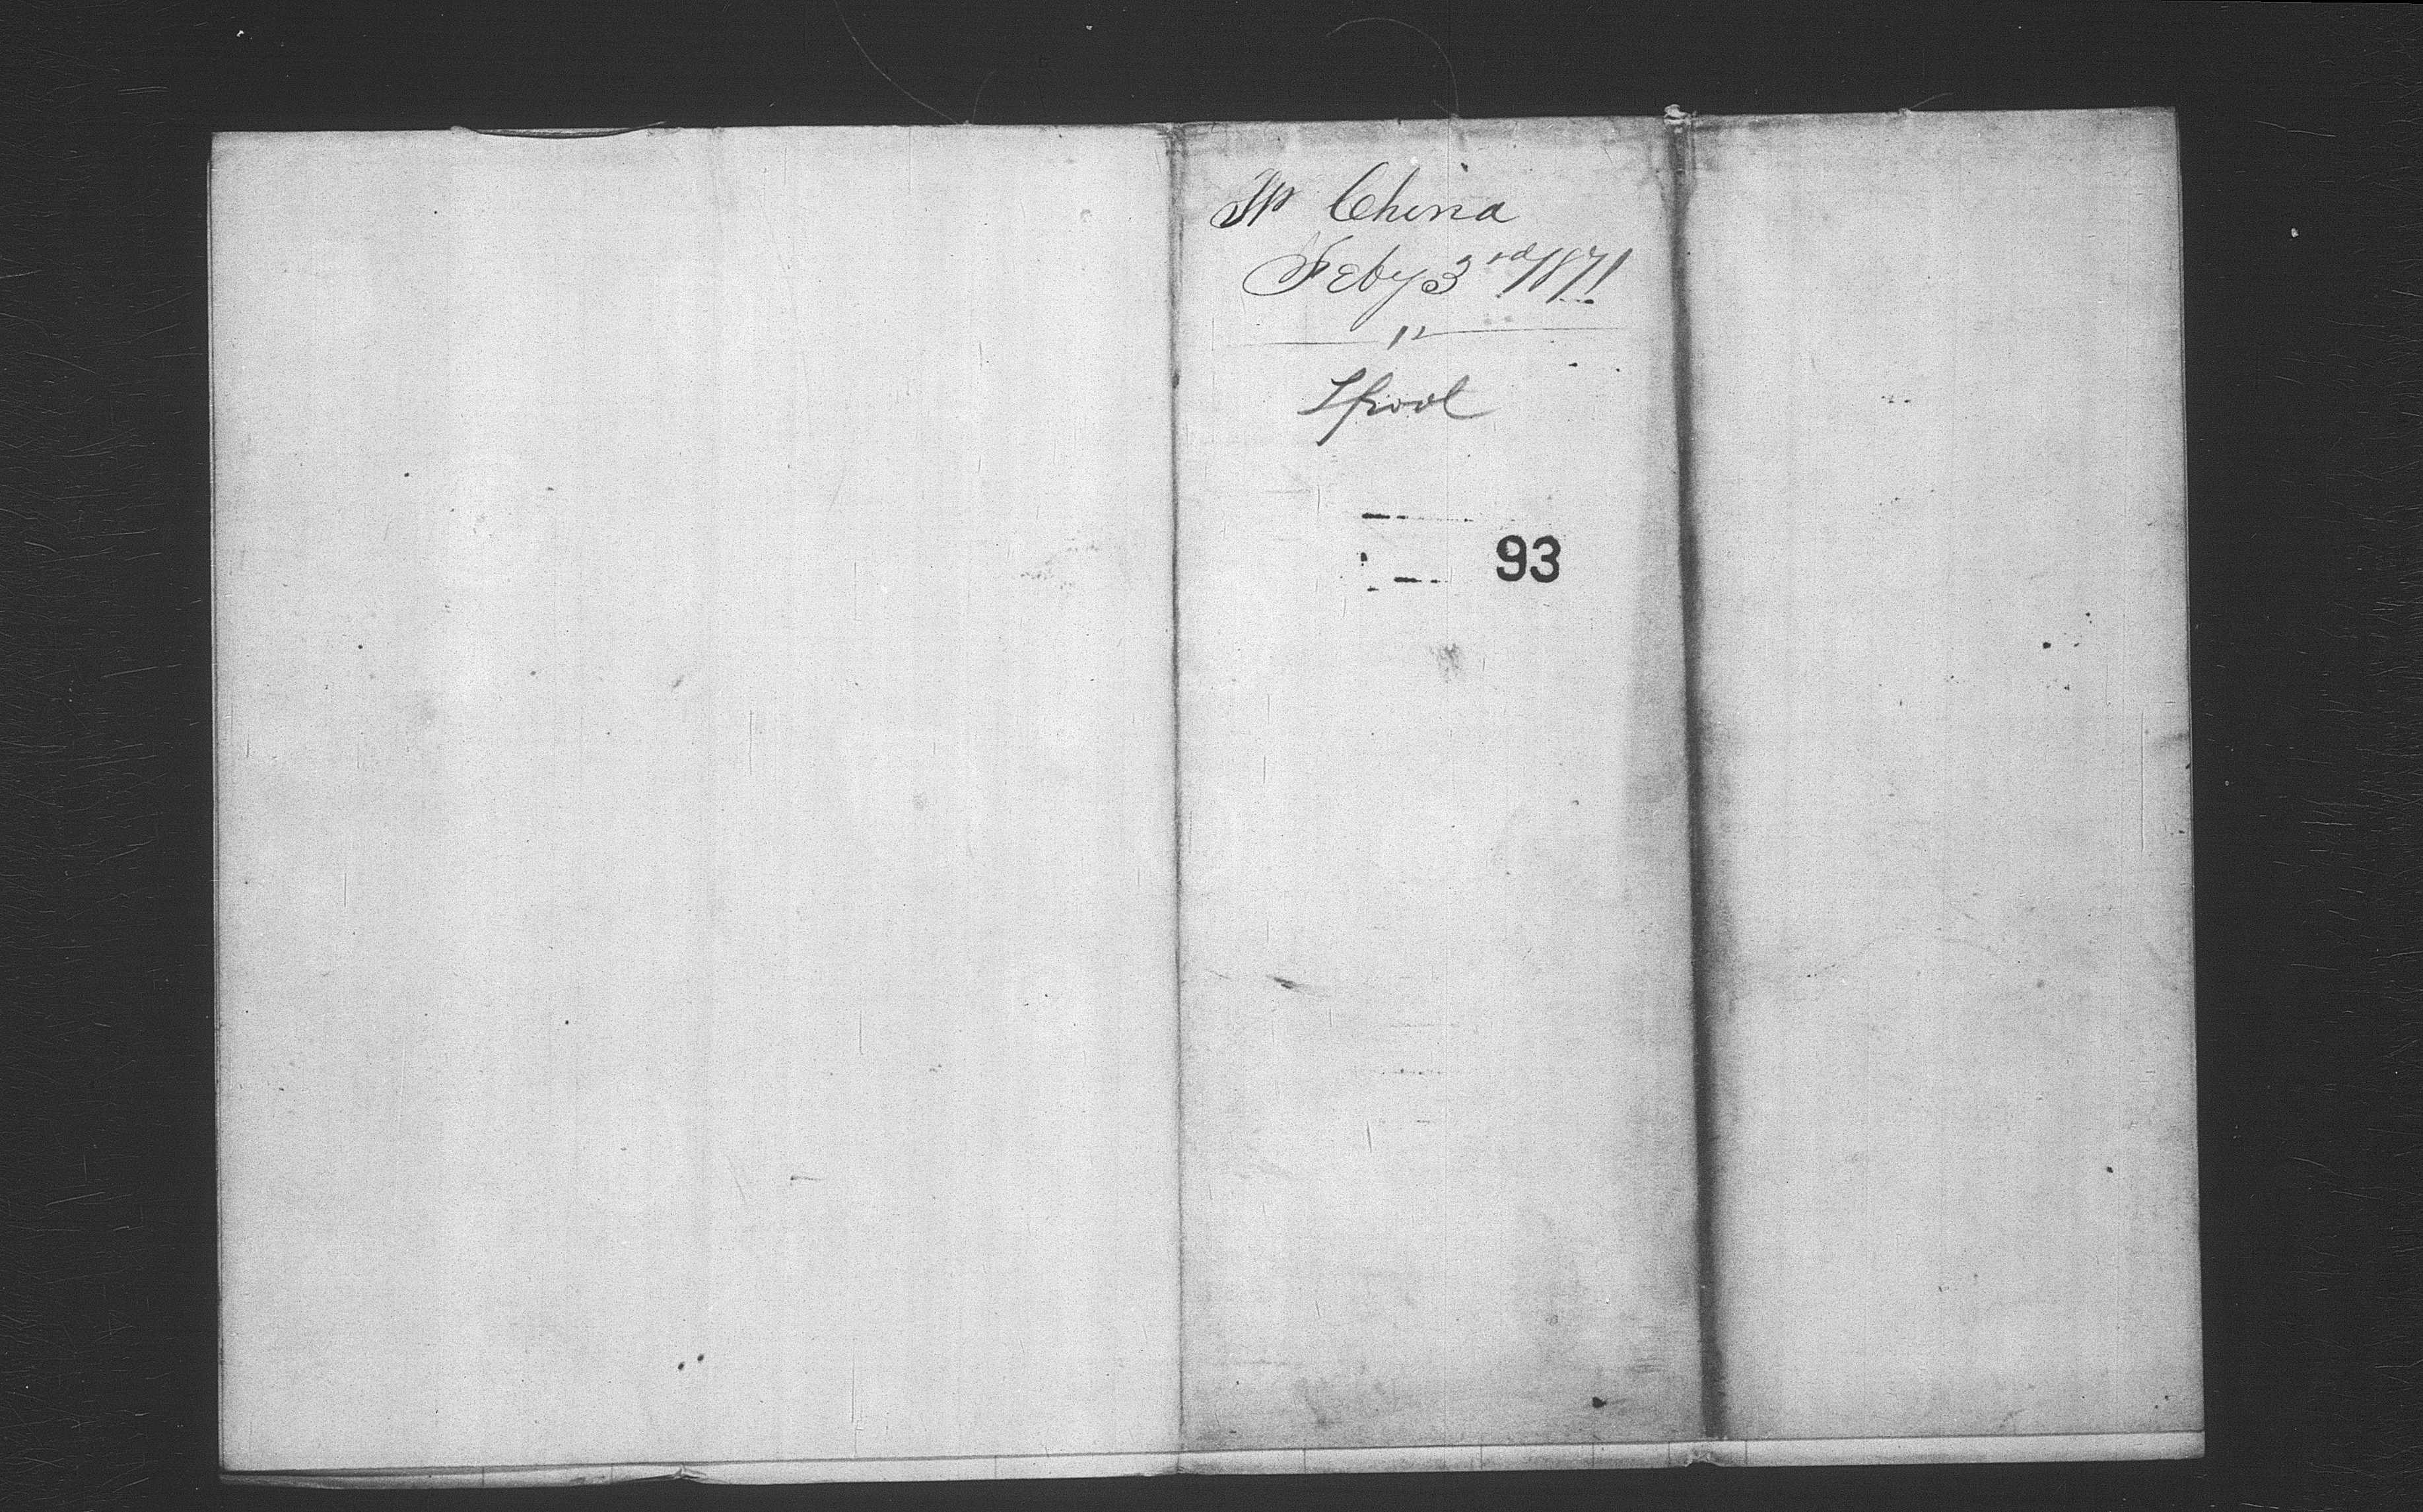 Sp China
Feby 3rd 1871
12
Lpool
93